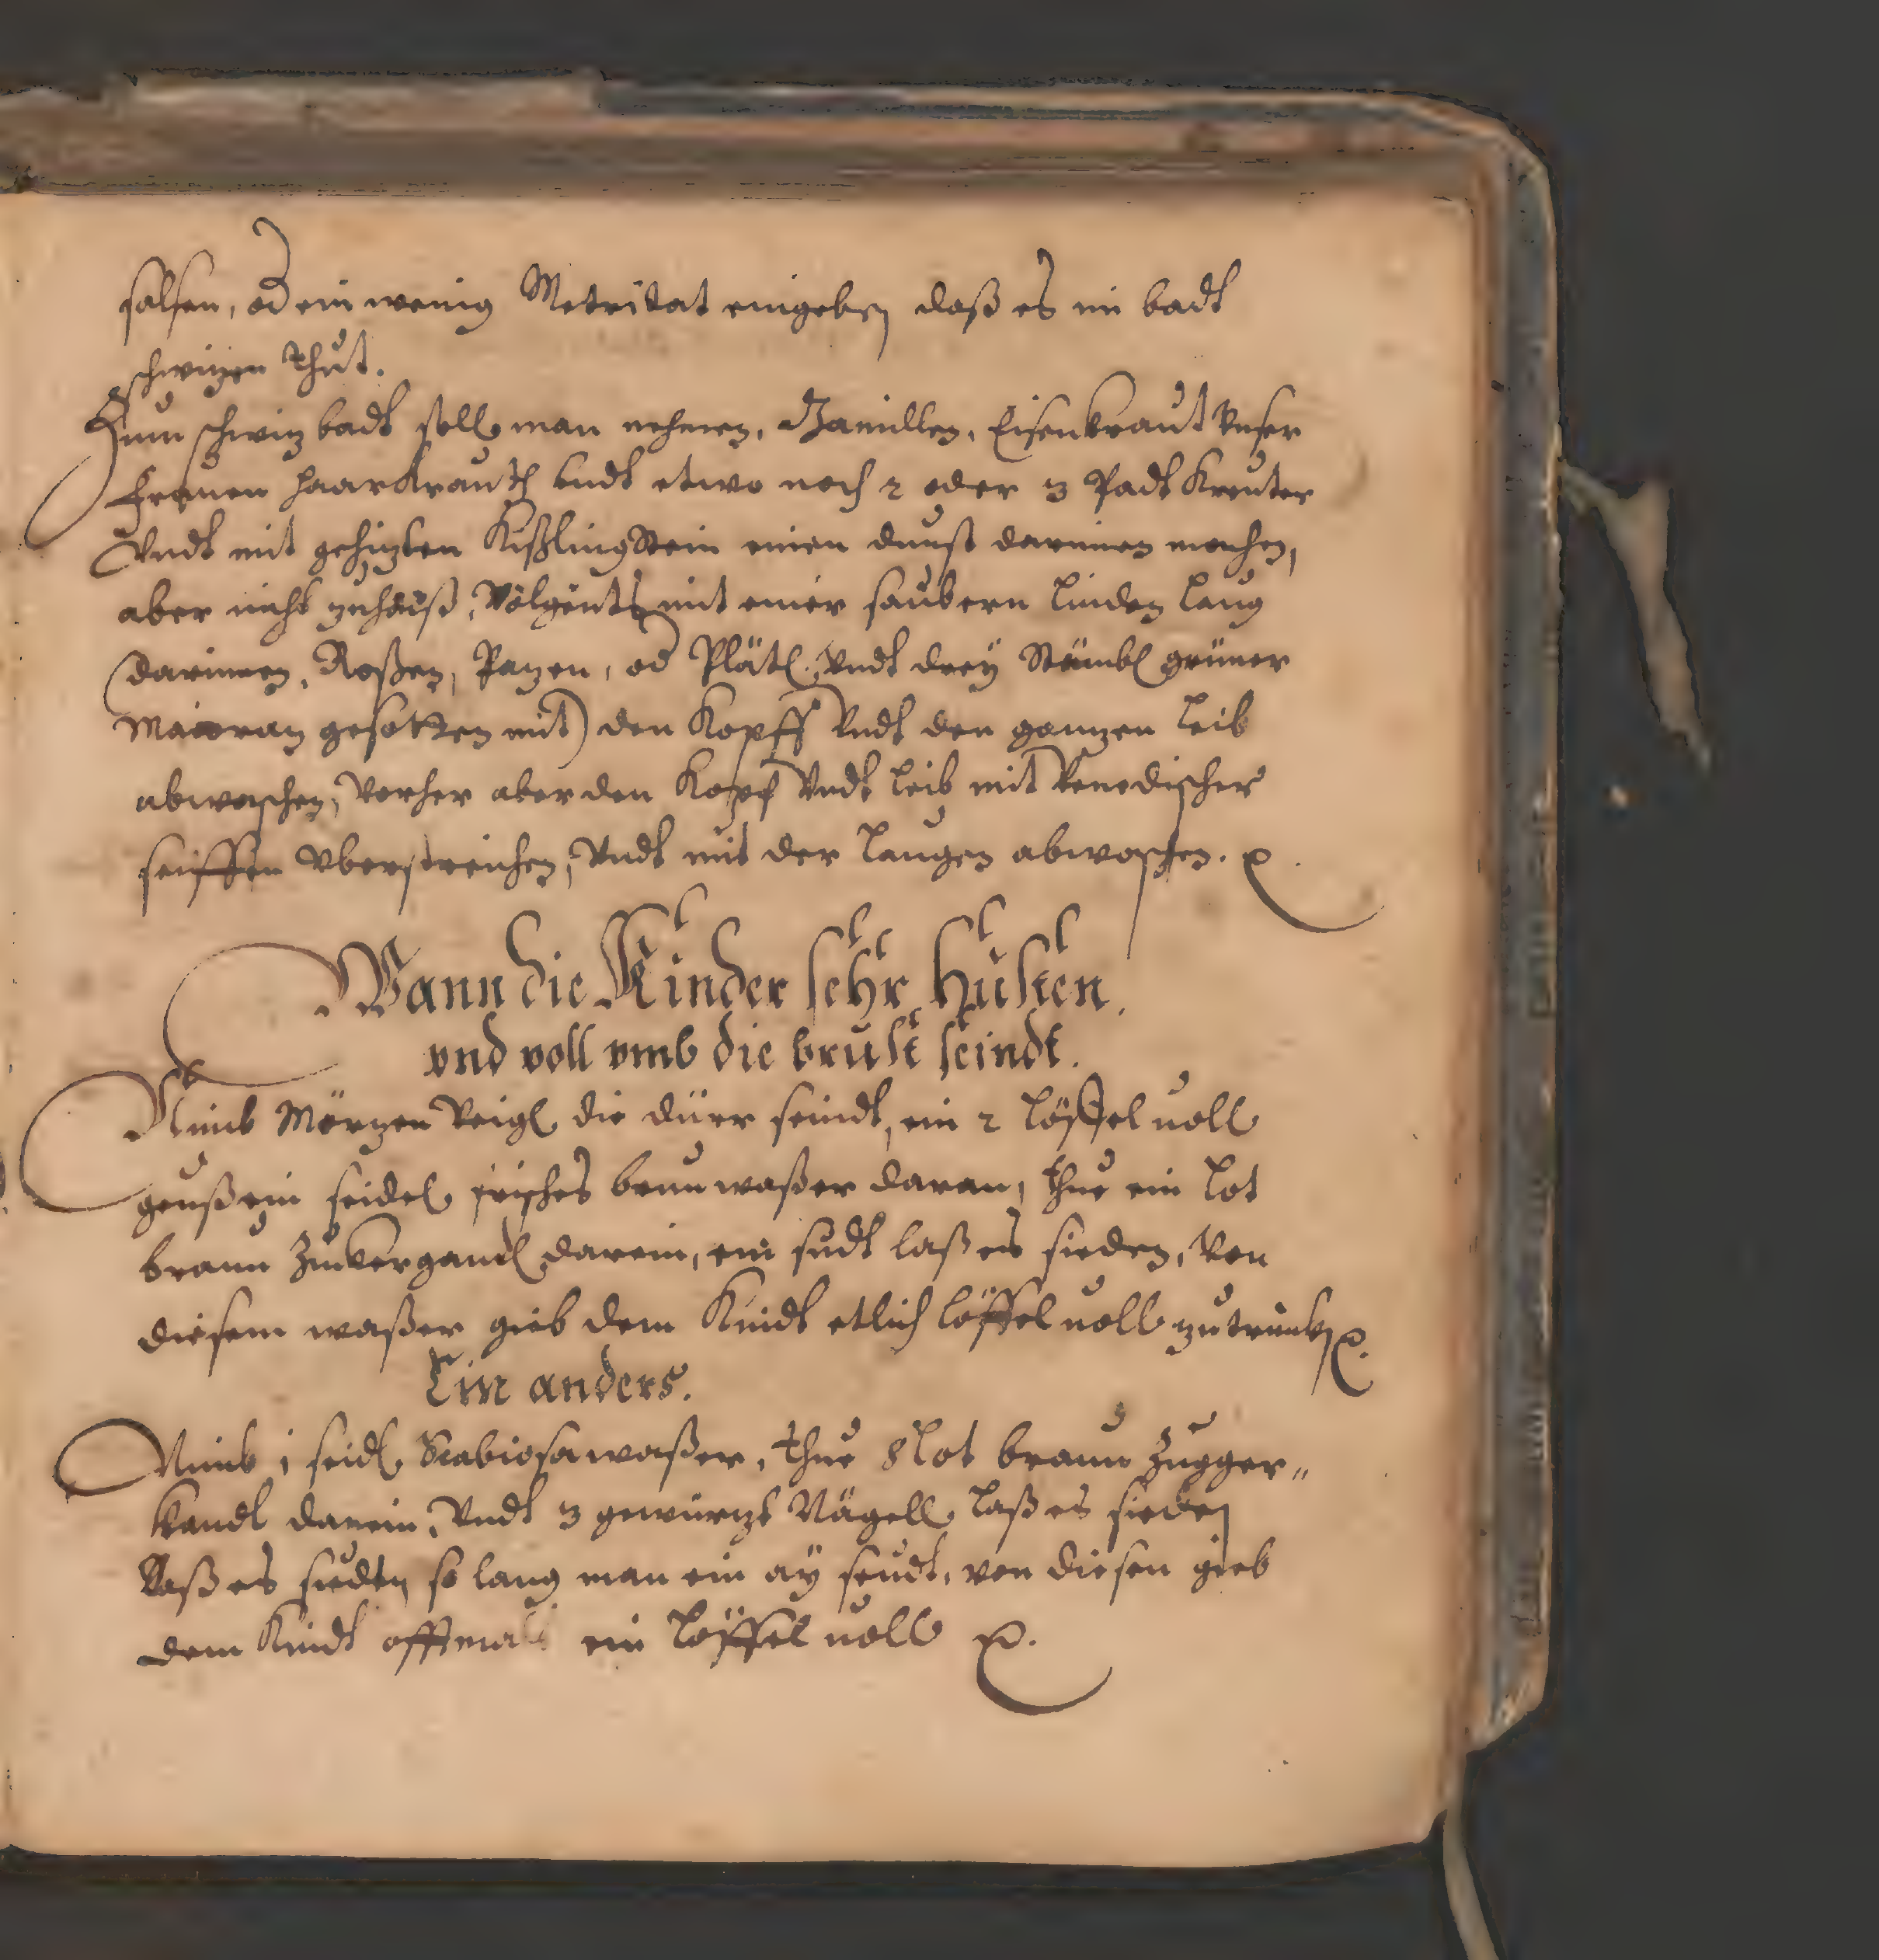 salsen, od ein wenig Metridat eingeben daß es im badt
schwizen thut.
Zum schwiz badt soll man nehmen, Camillen, Eisenkraut Vnser
Frauen haar Krauth vndt etwo noch 2 oder 3 Padt Kreuter
Vndt mit gehizten Kißling Stein einen dunst darinnen machen,
aber nicht zu haiß, Volgents mit einer saubern linden laug
(darinnen, Roßen, Pazen, od Plätl, Vndt drey Stämbl grüner
Maioran gesotten mit) den Kopff Vndt den ganzen leib
abwaschen, Vorher aber den Kopf Vndt leib mit Venedischer
seiffen Vberstreichen, Vndt mit der laugen abwaschen.
Wann die Kinder sehr Husten.
vnd voll vmb die brust seindt.
Nimb Märzen Veigl die dürr seindt, ein 2 löffel voll
geuß ein seidel frisches brunwaßer daran, thue ein lot
braun Zuckergandl darein, ein sudt laß es sieden, Von
diesem waßer gieb dem Kindt etlich löffel voll zu trinken
Ein anders.
Nimb 1 seidl Scabiosawaßer, thue 8 lot braun Zugger„
kandl darein, Vndt 3 gewürzt Nägell laß es sieden
laß es sieden so lang man ein ay seudt, von diesen gieb
dem Kindt offtmals ein löffel voll